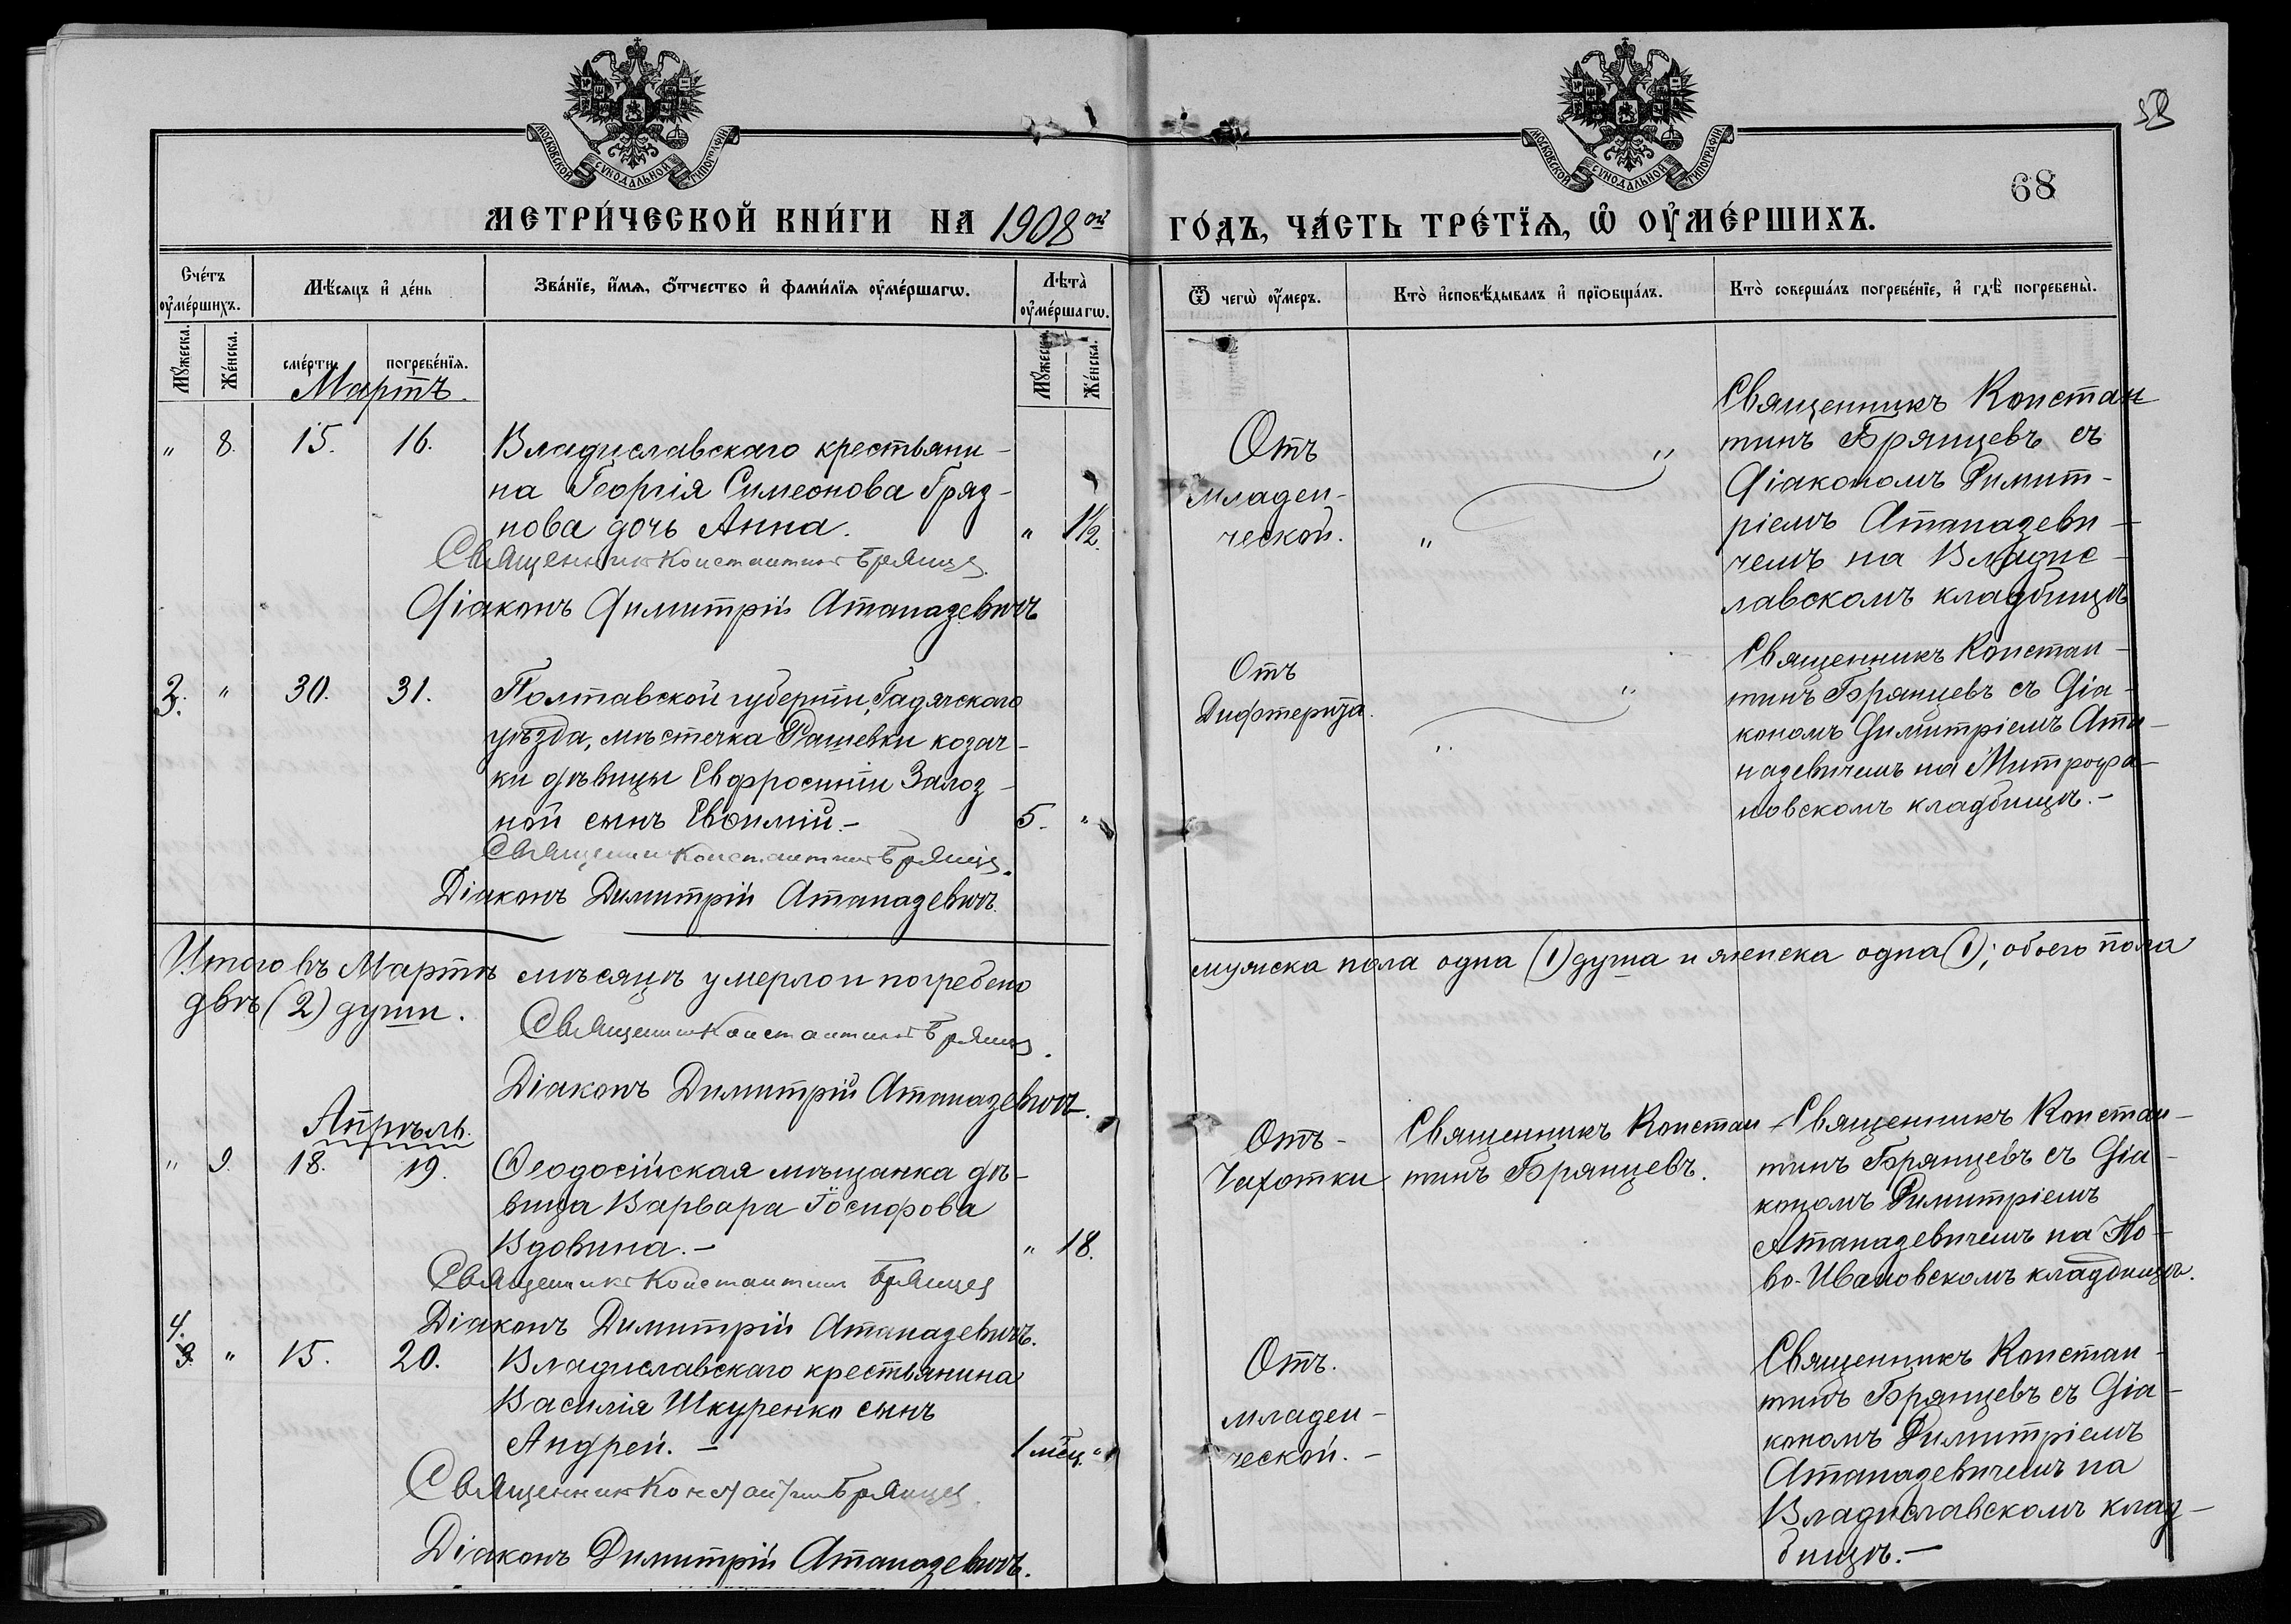 МОСКОВСКОЙ СѴНОДАЛЬНОЙ ТИПОГРАФІИ
МОСКОВСКОЙ СѴНОДАЛЬНОЙ ТИПОГРАФІИ
68
МЕТРИ́ЧЕСКОЙ КНИ́ГИ НА 1908ой
ГО́ДЪ, ЧА́СТЬ ТРЕ́ТЇѦ, Ѡ҆ ОУ҆МЕ́РШИХЪ.
Сче́тъ оу҆ме́ршихъ.
Мѣ́сяцъ и҆ де́нь
Зва́нїе, и҆́мѧ, ѻ҆́тчество и҆ фами́лїѧ оу҆ме́ршагѡ.
Лѣ́та̀ оу҆ме́ршагѡ.
Ѿ чегѡ̀ оу҆́меръ.
Кто̀ и҆сповѣ́дывалъ и҆ прїѡбща́лъ.
Кто̀ соверша́лъ погребе́нїе, и҆ гдѣ̀ погребены̀.
Мꙋ́жеска.
Же́нска.
сме́рти.
погребе́нїѧ.
Мꙋ́жеска.
Же́нска.
Мартъ.
" 8. 15. 16.
Владиславскаго крестьяни-
на Георгія Симеонова Гряз-
нова дочь Анна. " 1½.
Священникъ Константинъ Брянцев
Діаконъ Димитрій Атаназевичъ
Отъ
младен-
ческой.
" "
Священникъ Констан
тинъ Брянцевъ съ
Діакономъ Димит-
ріемъ Атаназеви-
чемъ на Владис-
лавскомъ кладбищѣ
3. " 30. 31.
Полтавской губерніи, Гадячскаго
уѣзда, мѣстечка Рашевки козач-
ки дѣвицы Евфросиніи Залоз-
ной сынъ Евѳимій.- 5. "
Священникъ Константинъ Брянцев.
Діаконъ Димитрій Атаназевичъ.
Отъ
Дифтерита.
" "
Священникъ Констан-
тинъ Брянцевъ съ Діа-
кономъ Димитріемъ Ата-
назевичемъ на Митрофа-
новскомъ кладбищѣ.-
Итого въ Мартѣ мѣсяцѣ умерло и погребено
мужска пола одна (1) душа и женска одна (1); обоего пола
двѣ (2) души.
Священникъ Константинъ Брянцев.
Діаконъ Димитрій Атаназевичъ.
Апрѣль.
" 9. 18. 19.
Ѳеодосійская мѣщанка дѣ-
вица Варвара Іосифова
Вдовина.- " 18.
Священникъ Константин Брянцев
Діаконъ Димитрій Атаназевичъ.
Отъ-
Чахотки
Священникъ Констан
тинъ Брянцевъ.
Священникъ Констан-
тинъ Брянцевъ съ Діа-
кономъ Димитріемъ
Атаназевичемъ на Но-
во-Ивановскомъ кладбищѣ.
4. " 15. 20.
Владиславскаго крестьянина
Василія Шкуренко сынъ
Андрей.- 1 мѣц. "
Священник Константин Брянцев.
Діаконъ Димитрій Атаназевичъ.
Отъ.
младен-
ческой.-
Священникъ Констан-
тинъ Брянцевъ съ Діа-
кономъ Димитріемъ
Атаназевичемъ на
Владиславскомъ клад-
бищѣ.-